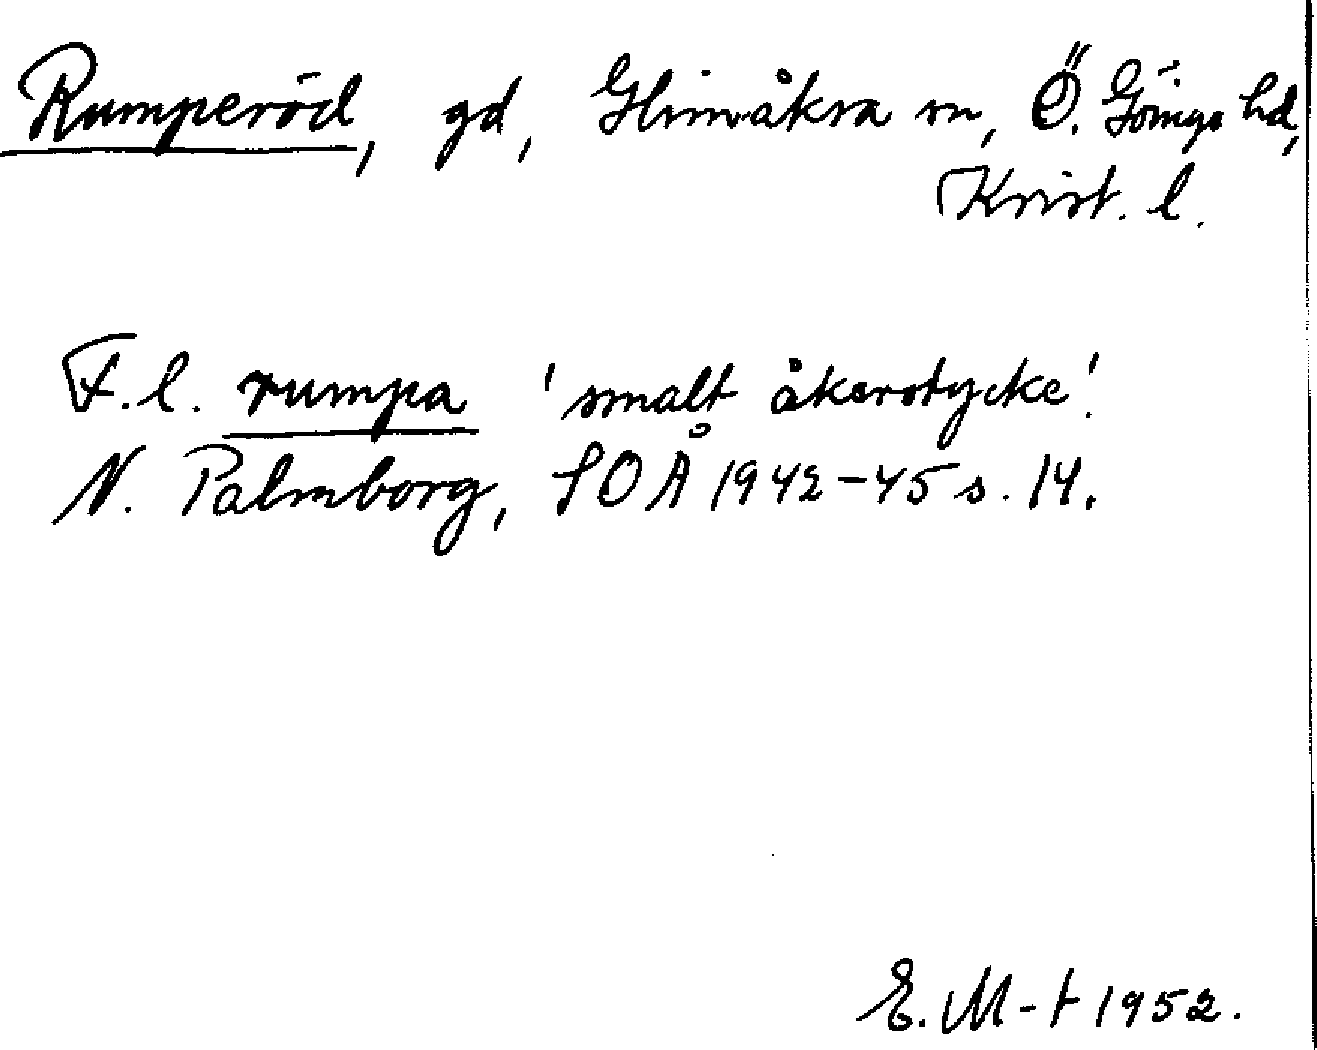 Rumperöd, gd, Glimåkra sn, Ö. Göinge hd,
Krist. l.
F. l. rumpa 'smalt åkerstycke'.
N. Palmborg, SOÅ 1942-45 s. 14.
E. M-t 1952.